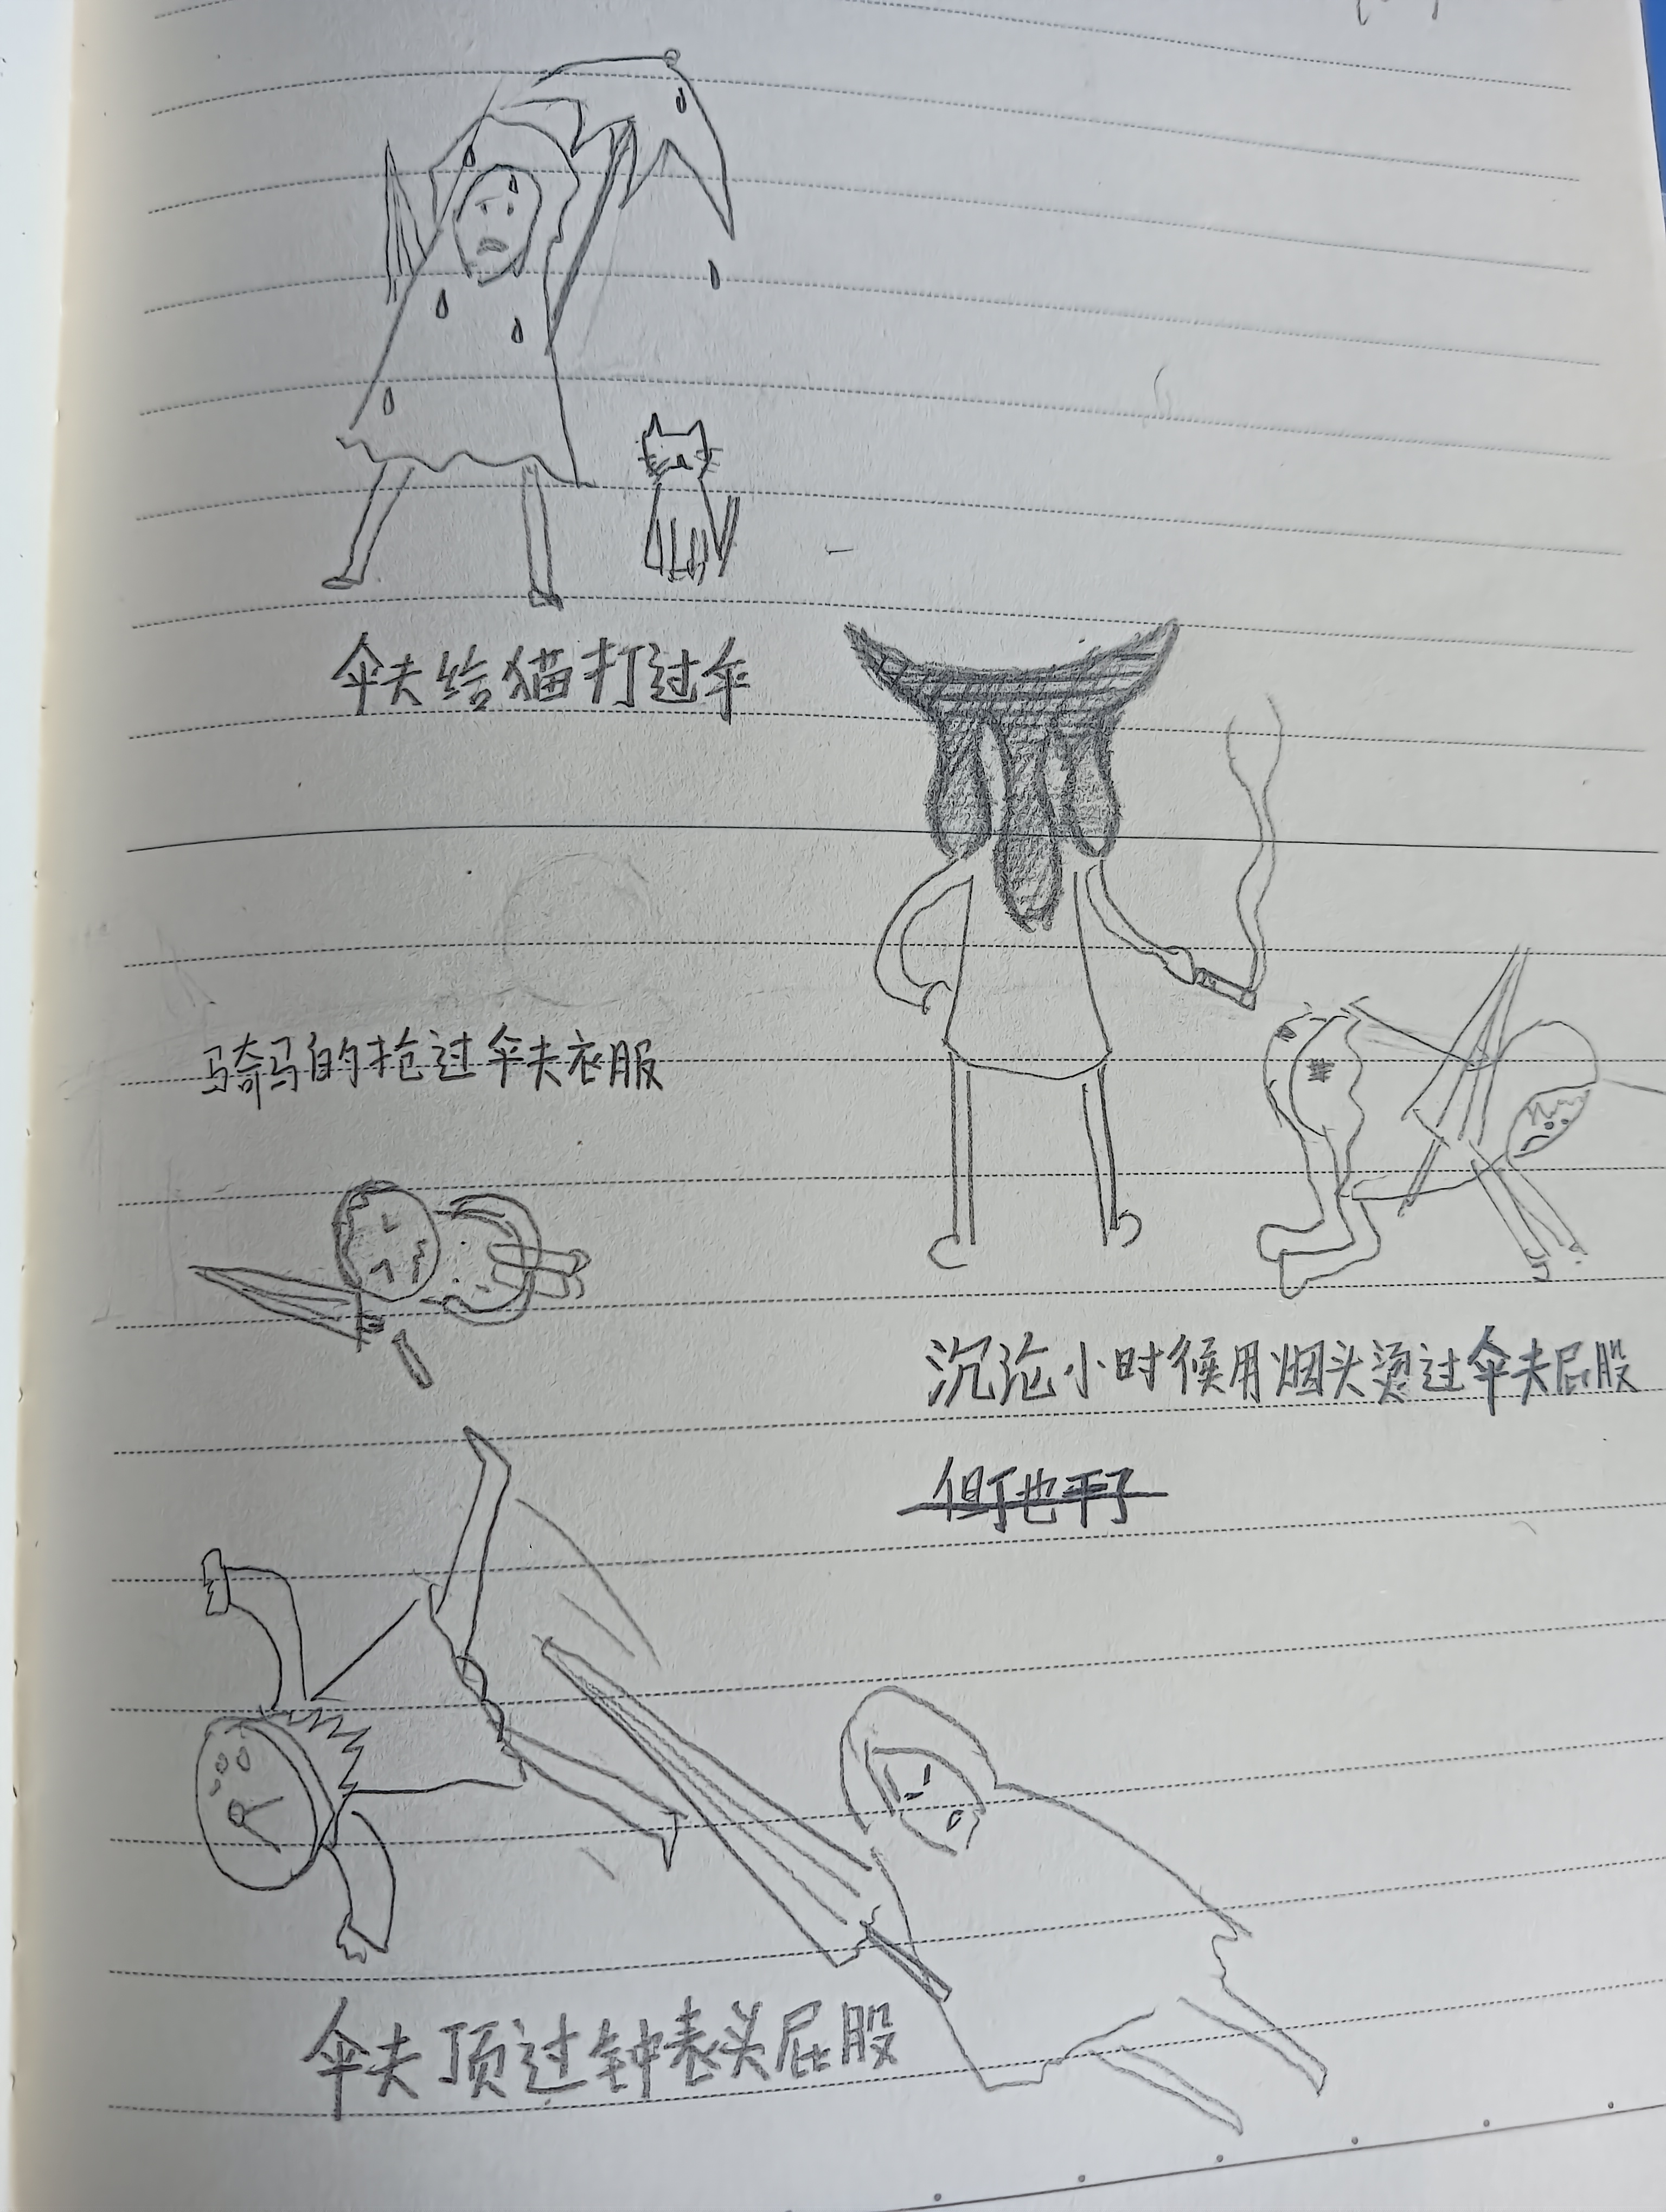 伞夫给猫打过伞
骑马的抢过伞夫衣服
沉沦小时候用烟头烫过伞夫屁股
但丁也干了
伞夫顶过钟表头屁股